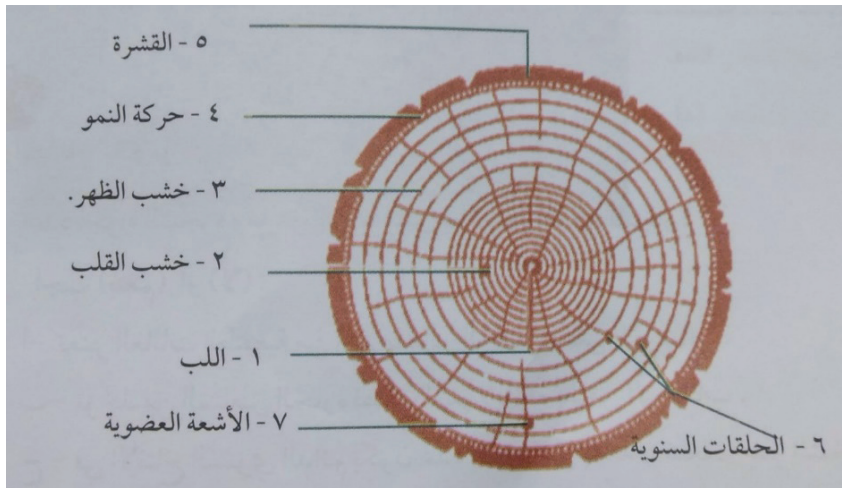 ٥ - القشرة
٤ - حركة النمو
٣ - خشب الظهر.
٢ - خشب القلب
١ - اللب
٧ - الأشعة العضوية
٦ - الحلقات السنوية